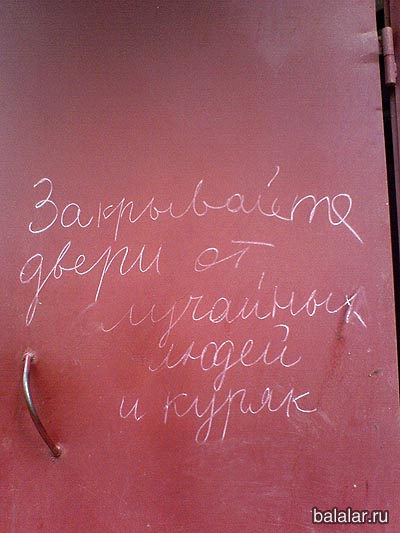 Закрывайте
двери от
случайных
людей
и куряк
balalar.ru